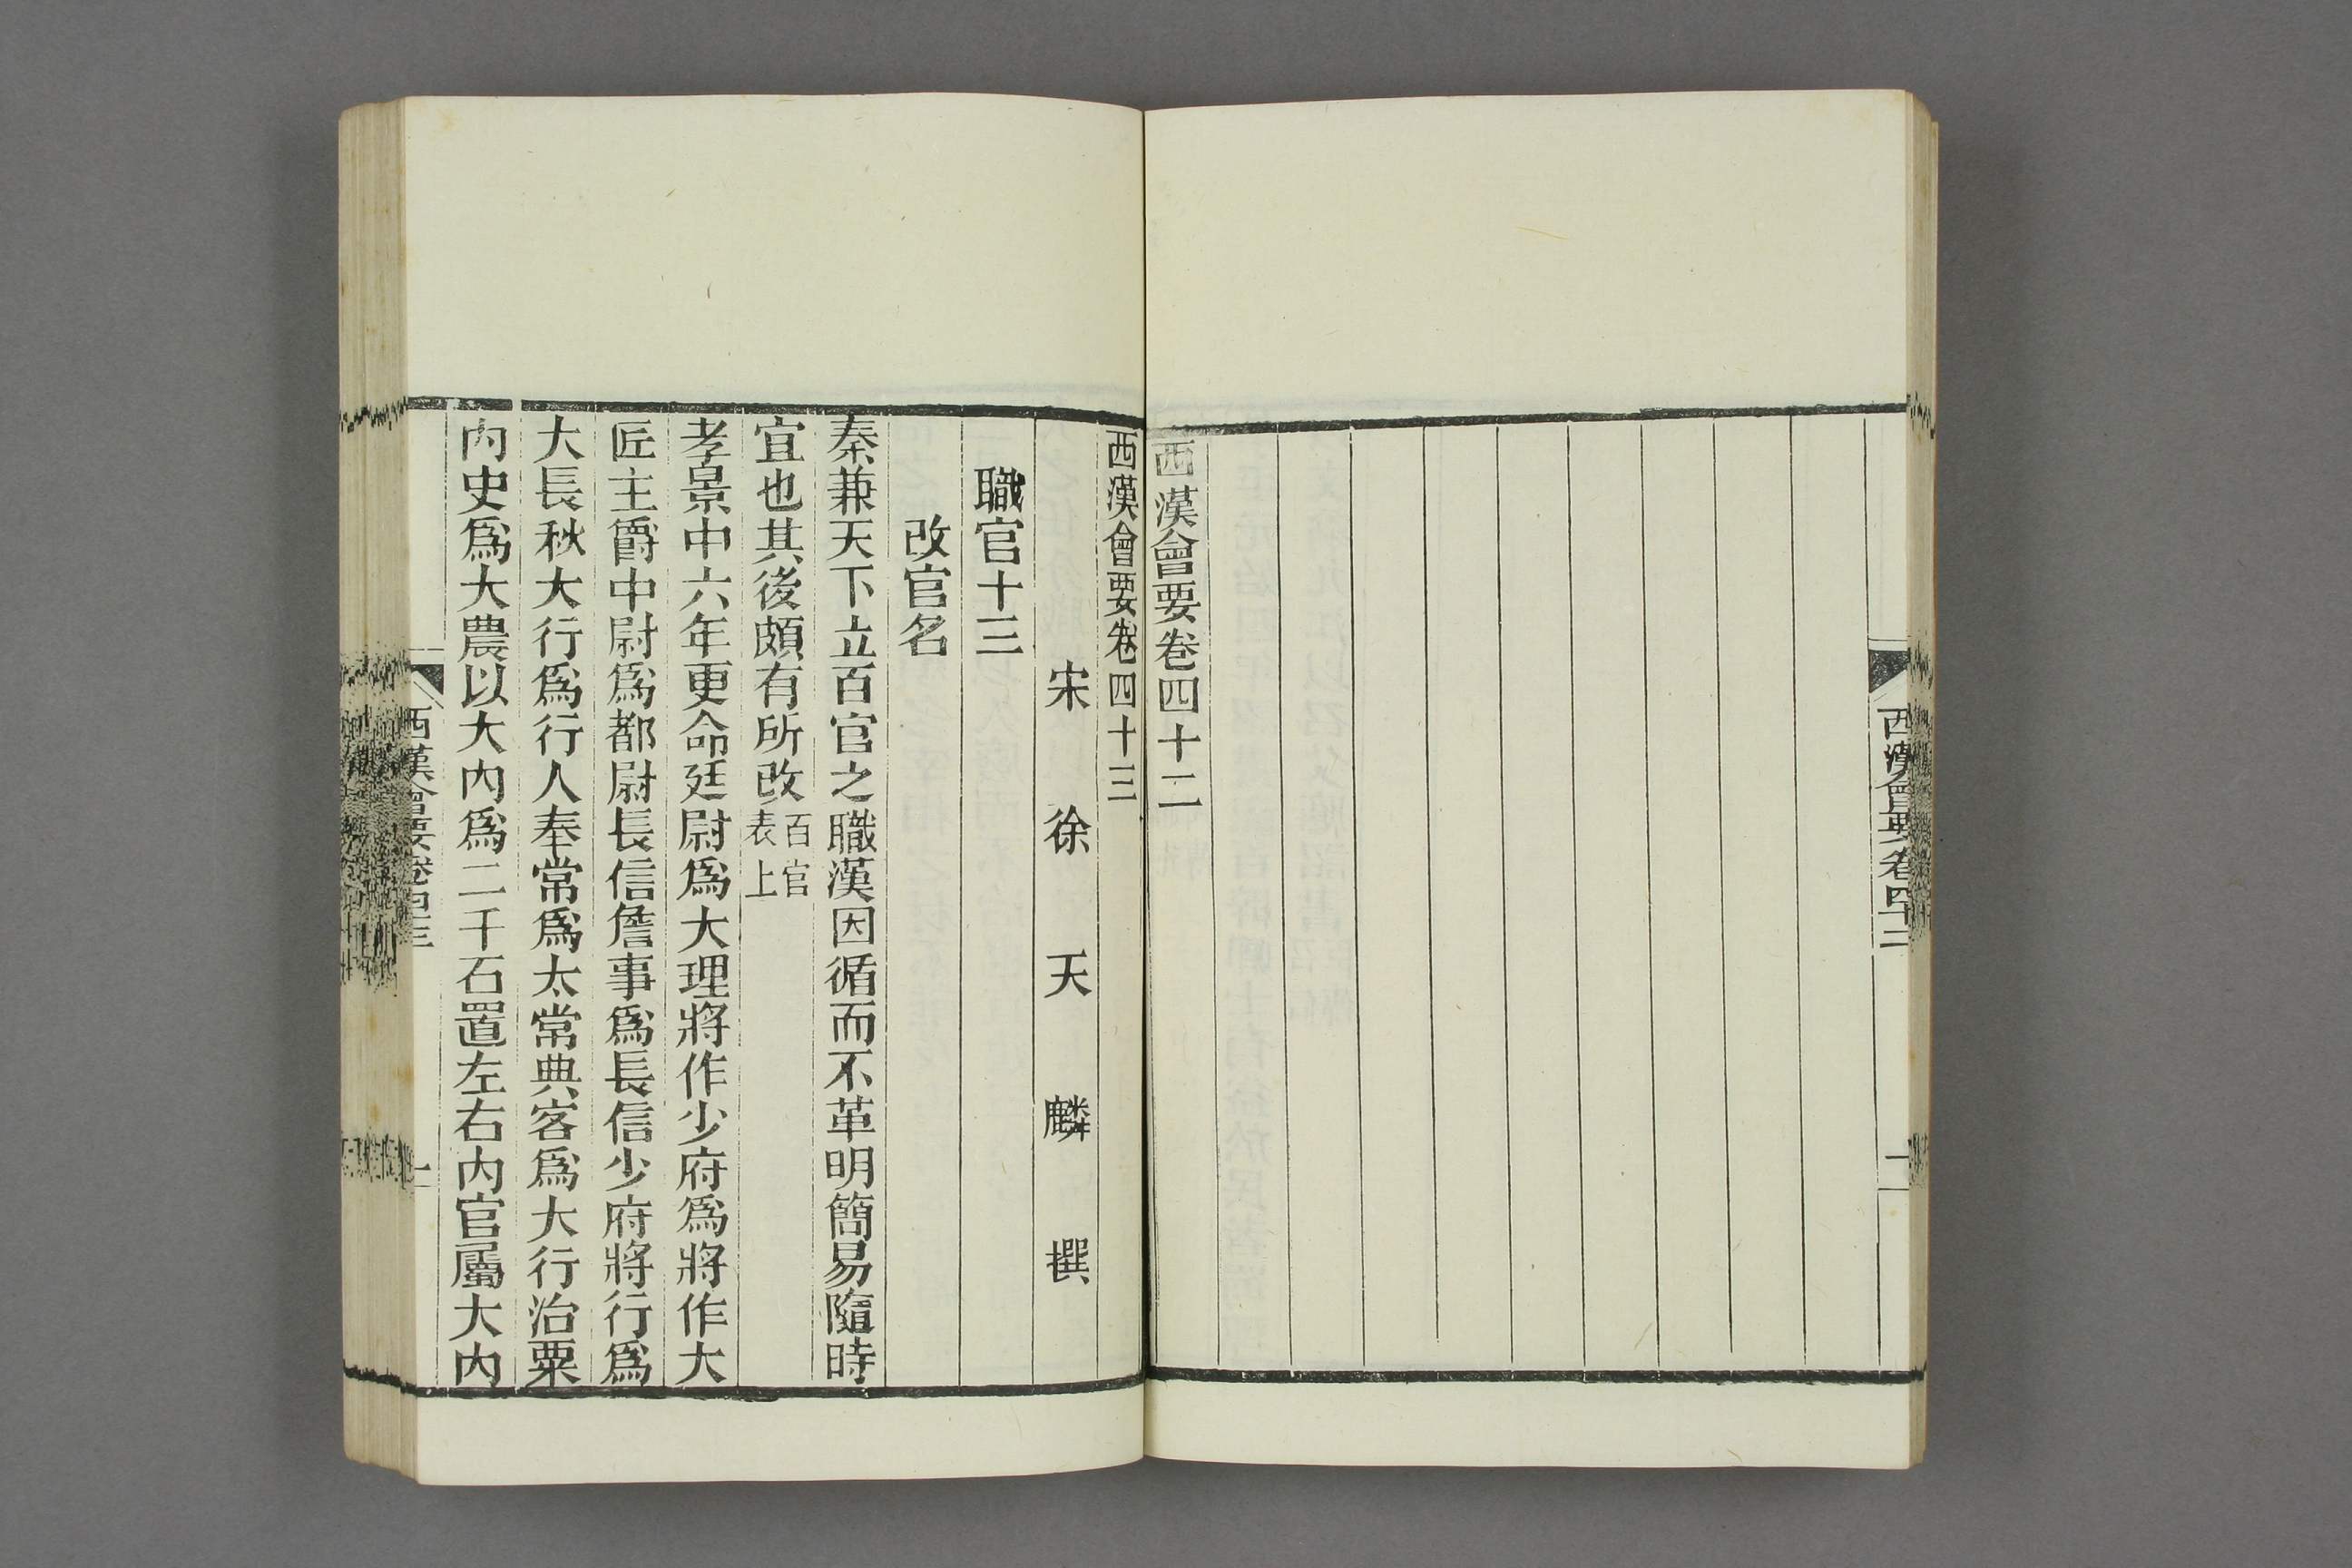 西漢會要卷四十二
西漢會要卷四十二
西漢會要卷四十三
宋徐天麟撰
職官十三
改官名
秦兼天下立百官之職漢因循而不革明簡易隨時
宜也其後頗有所改百官表上
孝景中六年更命廷尉爲大理將作少府爲將作大
匠主爵中尉爲都尉長信詹事爲長信少府將行爲
大長秋大行爲行人奉常爲太常典客爲大行治粟
內史爲大農以大內爲二千石置左右內官屬大內
西漢會要卷四十三
一